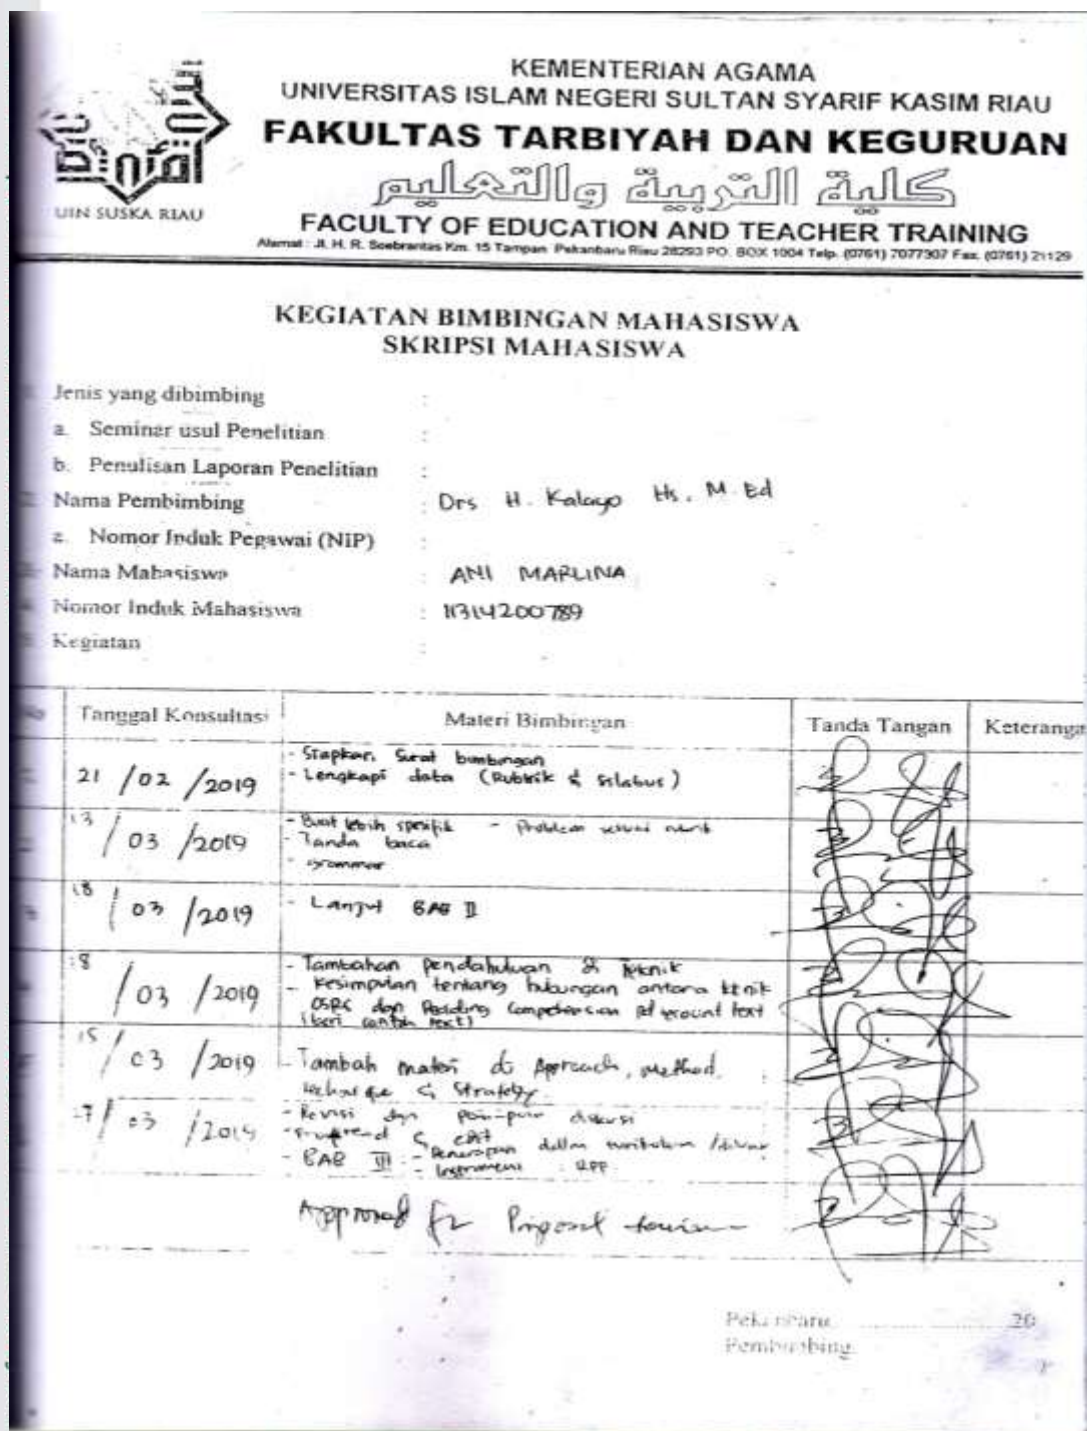 KEMENTERIAN AGAMA
UNIVERSITAS ISLAM NEGERI SULTAN SYARIF KASIM RIAU
FAKULTAS TARBIYAH DAN KEGURUAN
كلية التربية والتعليم
FACULTY OF EDUCATION AND TEACHER TRAINING
Alamat : Jl. H. R. Soebrantas Km. 15 Tampan Pekanbaru Riau 28293 PO. BOX 1004 Telp. (0761) 7077307 Fax. (0761) 21129
UIN SUSKA RIAU
KEGIATAN BIMBINGAN MAHASISWA
SKRIPSI MAHASISWA
Jenis yang dibimbing :
a. Seminar usul Penelitian :
b. Penulisan Laporan Penelitian :
Nama Pembimbing : Drs H. Kalayo Hs. M.Ed
a. Nomor Induk Pegawai (NIP) :
Nama Mahasiswa ANI MARLINA
Nomor Induk Mahasiswa : 11314200789
Kegiatan :
No Tanggal Konsultasi Materi Bimbingan Tanda Tangan Keteranga
21 /02 /2019
- Siapkan Surat bimbingan
- Lengkapi data (Rubrik & silabus)
13 / 03 /2019
- Buat lebih spesifik - Problem
- Tanda baca
- Grammar
18 / 03 /2019 - Lanjut BAB II
/ 03 /2019
- Tambahan pendahuluan & Teknik
- Kesimpulan tentang hubungan antara
dan Reading text
(beri contoh text)
/ 03 /2019
- Tambah materi Approach, Method,
& Strategy
/ 03 /2019
- Revisi diskusi
& edit
- BAB III - Penerapan dalam
- Instrument : RPP
Approved Proposal
Pekanbaru, 20
Pembimbing